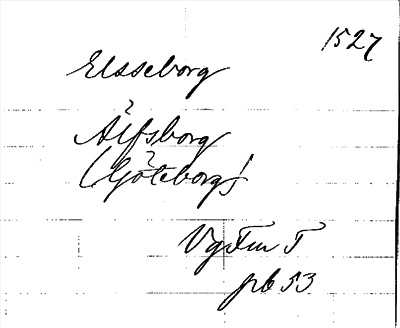 1527
Elsseborg
Älfsborg
(Göteborg)
Vg Fm T
pb 53